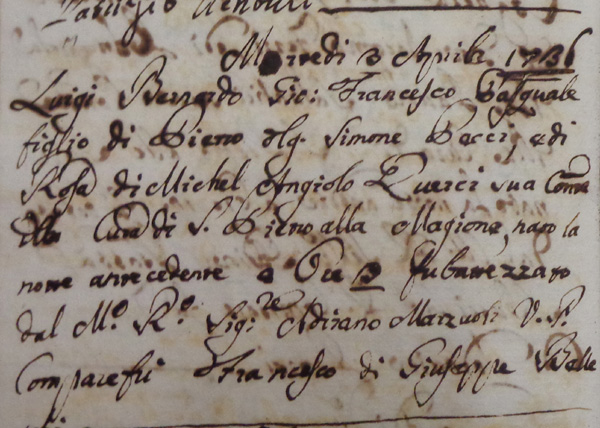 Martedi 3 Aprile 1736
Luigi Bernardo Gio: Francesco Pasquale
figlio di Piero olg. Simone Pacci, e di
Rosa di Michel Angiolo Querci sua Con:te
della Cura di S. Piero alla Magione, nato la
notte antecedente a Ore 3 fu battezzato
dal M.º R.º Sig:re Adriano Marzuoli V. P.
Compare fù Francesco di Giuseppe Belle